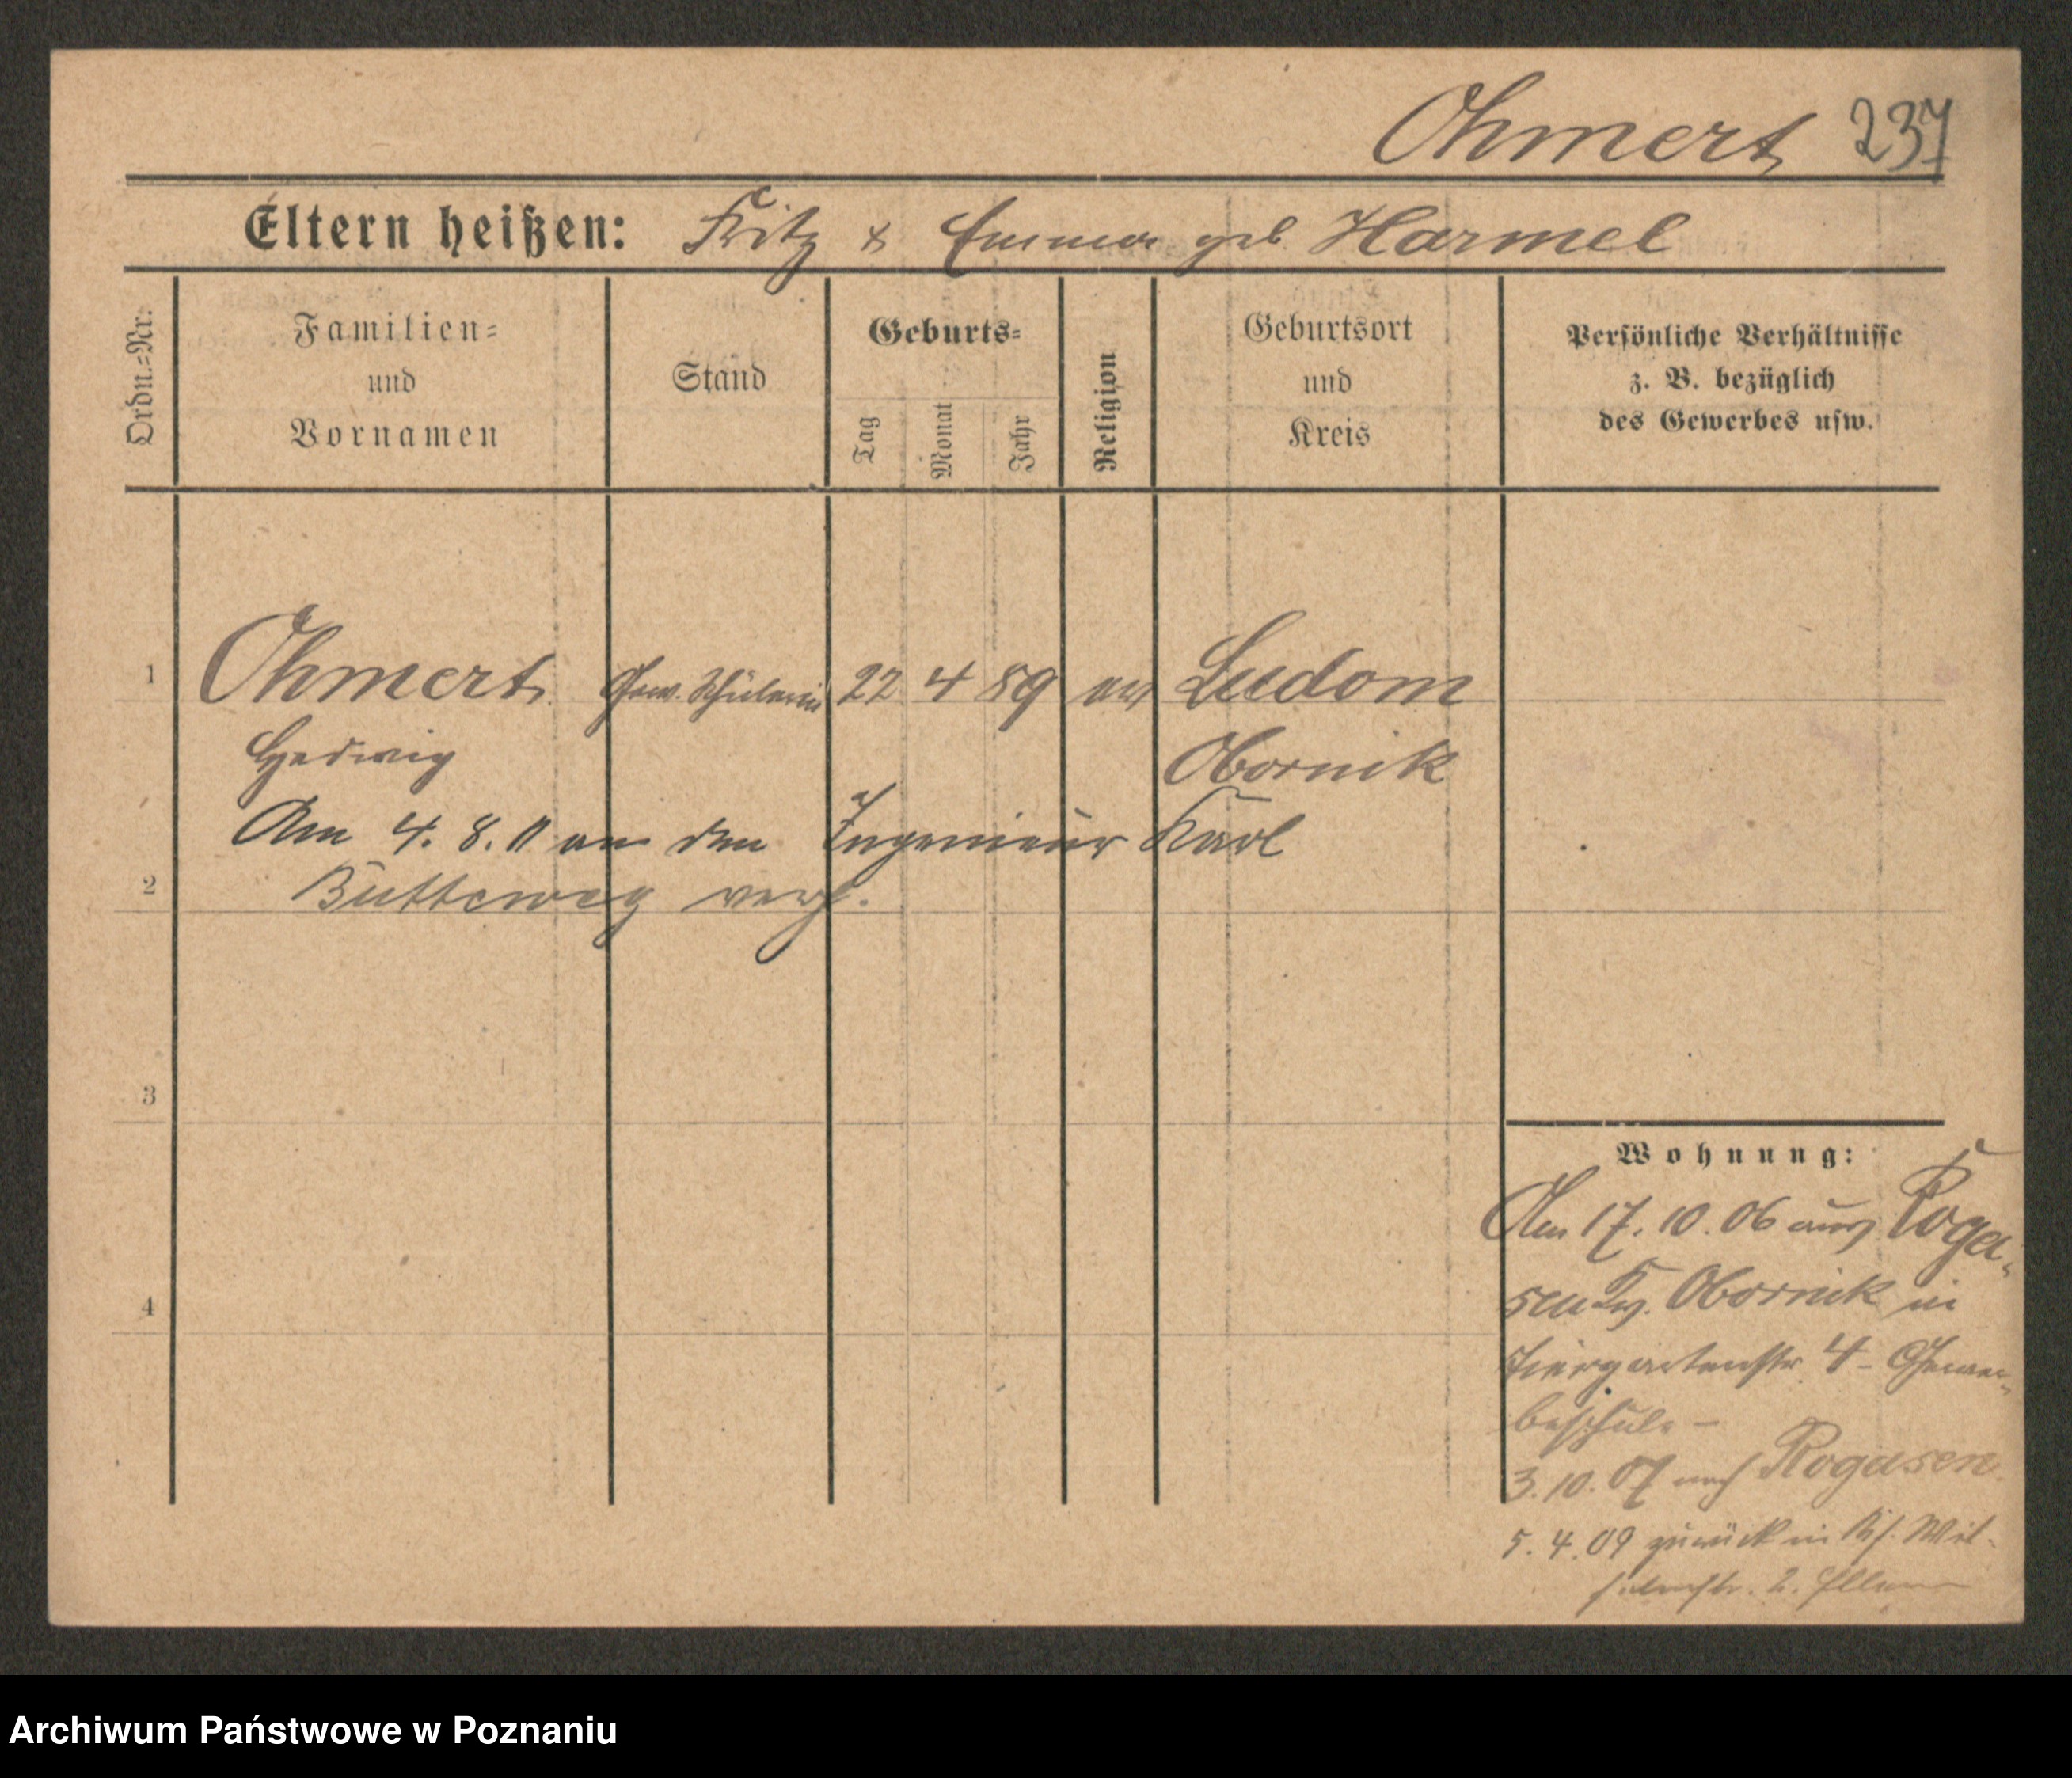 Ohmert 237
Eltern heißen: Fritz & Emma geb. Harmel
Ordn.-Nr.
Familien-
und
Vornamen
Stand
Geburts-
Tag
Monat
Jahr
Religion
Geburtsort
und
Kreis
Persönliche Verhältnisse
z. B. bezüglich
des Gewerbes usw.
1 Ohmert Gew. Schülerin 22 4 89 ev Ludom
Hedwig Obornik
Am 4. 8. 11 an den Ingenieur Karl
2 Butteweg verh.
3
4
Wohnung:
Am 17. 10. 06 aus Roga-
sen Kr. Obornik in
Tiergartenstr. 4 - Gewer-
beschule -
3. 10. 07 nach Rogasen
5. 4. 09 zurück in Wil-
helmstr. 2.
Archiwum Państwowe w Poznaniu